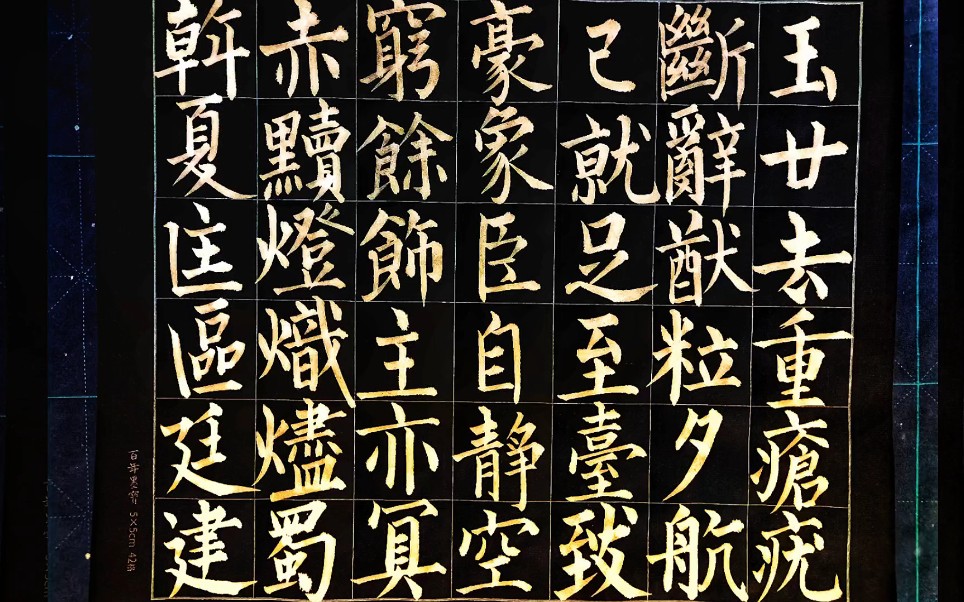 玉廿去重瘡疣
斷辭猷粒夕航
已就足至臺致
豪象臣自靜空
窮餘飾主亦冥
赤黷燈熾燼蜀
斡夏匡區廷建
5×5cm 42格